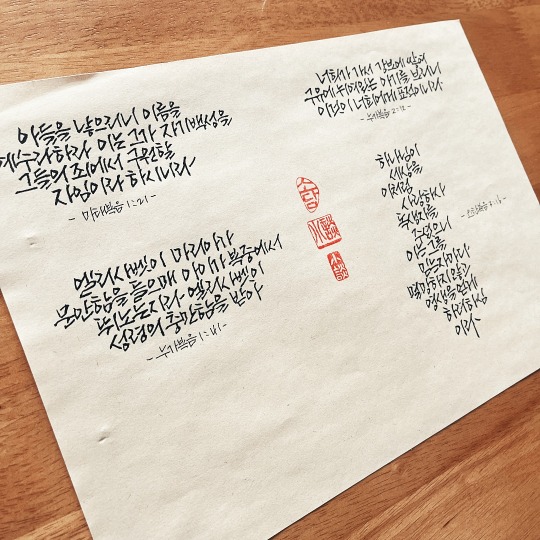 아들을 낳으리니 이름을
예수라 하라 이는 그가 자기백성을
그들의 죄에서 구원할
자임이라 하시니라
- 마태복음 1:21 -
엘리사벳이 마리아가
문안함을 들으매 아이가 복중에서
뛰노는지라 엘리사벳이
성령의 충만함을 받아
- 누가복음 1:41 -
너희가 가서 강보에 싸여
구유에 뉘어있는 아기를 보리니
이것이 너희에게 표적이니라
- 누가복음 2:12 -
하나님이
세상을
이처럼
사랑하사
독생자를
주셨으니
이는 그를
믿는자마다
멸망하지 않고
영생을 얻게
하려하심
이라
- 요한복음 3:16 -